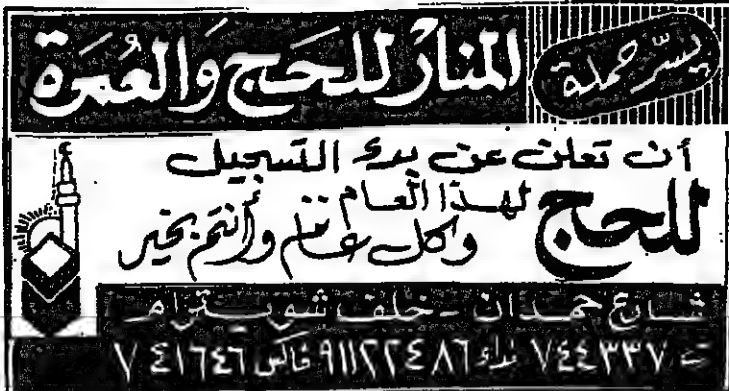 يسر حملة
المنار للحَج وَالعُمرَة
أن تعلن عن بدء التسجيل
للحج لهذا العام
وكل عام وأنتم بخير
شارع حمدان - خلف شويترام
ت ٧٤٤٣٣٧ نداء ٩١١٢٢٤٨٦ فاكس ٧٤١٦٤٦